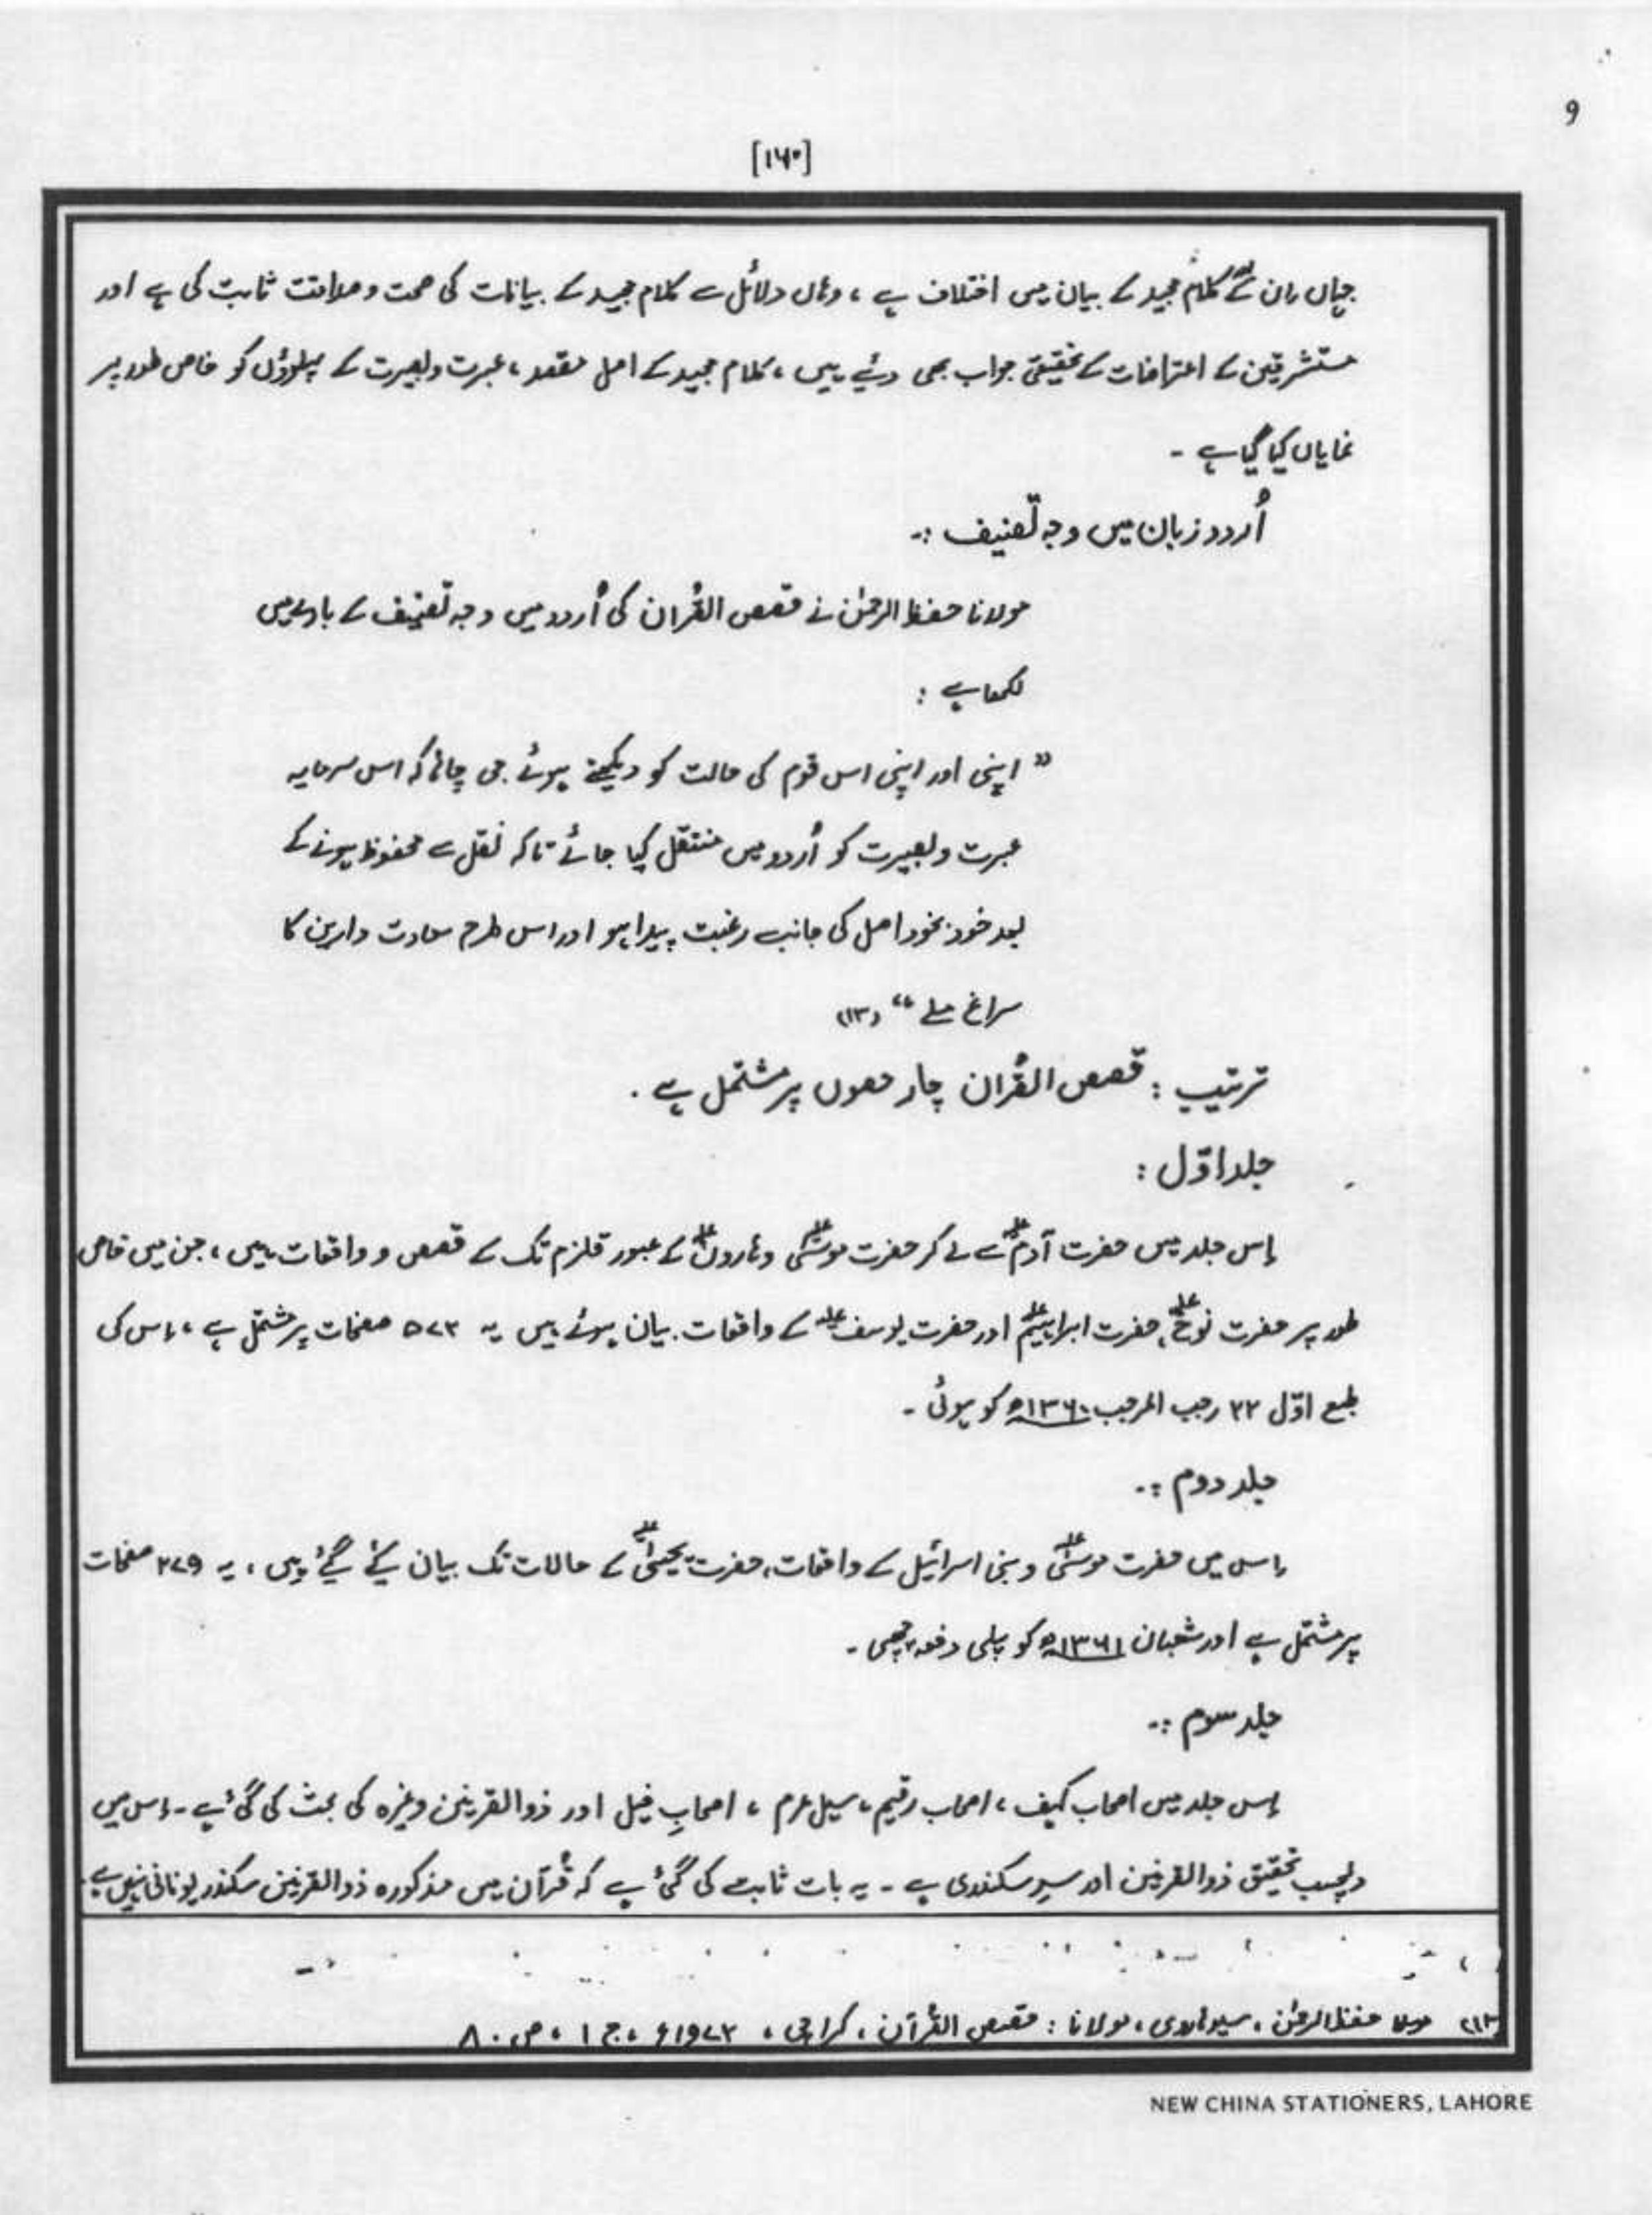 9
[۱۶۰]
جہاں ان کے کلام مجید کے بیان میں اختلاف ہے ، وہاں دلائل سے کلام مجید کے بیانات کی صحت و صداقت ثابت کی ہے اور
مستشرقین کے اعتراضات کے تحقیقی جواب بھی دیئے ہیں ، کلام مجید کے اصل مقصد ، عبرت و بصیرت کے پہلوؤں کو خاص طور پر
نمایاں کیا گیا ہے ۔
اُردو زبان میں وجہ تصنیف :۔
مولانا حفظ الرحمٰن نے قصص القُرآن کی اُردو میں وجہ تصنیف کے بارے میں
لکھا ہے :
” اپنی اور اپنی اس قوم کی حالت کو دیکھتے ہوئے جی چاہا کہ اس سرمایہ
عبرت و بصیرت کو اُردو میں منتقل کیا جائے تاکہ نقل سے محفوظ ہونے کے
بعد خود بخود اصل کی جانب رغبت پیدا ہو اور اس طرح سعادت دارین کا
سراغ ملے “ (۱۳)
ترتیب : قصص القُرآن چار حصوں پر مشتمل ہے ۔
جلد اوّل :
اِس جلد میں حضرت آدمؑ سے لے کر حضرت موسیٰؑ و ہارونؑ کے عبور قلزم تک کے قصص و واقعات ہیں ، جن میں خاص
طور پر حضرت نوحؑ ، حضرت ابراہیمؑ اور حضرت یوسفؑ کے واقعات بیان ہوئے ہیں یہ ۵۷۳ صفحات پر مشتمل ہے ، اِس کی
طبع اوّل ۲۲ رجب المرجب ۱۳۶۰ھ کو ہوئی ۔
جلد دوم :۔
اِس میں حضرت موسیٰؑ و بنی اسرائیل کے واقعات ، حضرت یحییٰؑ کے حالات تک بیان کیے گئے ہیں ، یہ ۲۷۹ صفحات
پر مشتمل ہے اور شعبان ۱۳۶۱ھ کو پہلی دفعہ چھپی ۔
جلد سوم :۔
اِس جلد میں اصحاب کہف ، اصحاب رقیم ، سیل عرم ، اصحابِ فیل اور ذوالقرنین وغیرہ کی بحث کی گئی ہے ۔ اِس میں
دلچسپ تحقیق ذوالقرنین اور سدِ سکندری ہے ۔ یہ بات ثابت کی گئی ہے کہ قُرآن میں مذکورہ ذوالقرنین سکندر یونانی نہیں ہے
(۱۳) حفظ الرحمٰن ، سیوہاروی ، مولانا : قصص القُرآن ، کراچی ، ۱۹۷۲ء ، ج ۱ ، ص ۸۰
NEW CHINA STATIONERS, LAHORE